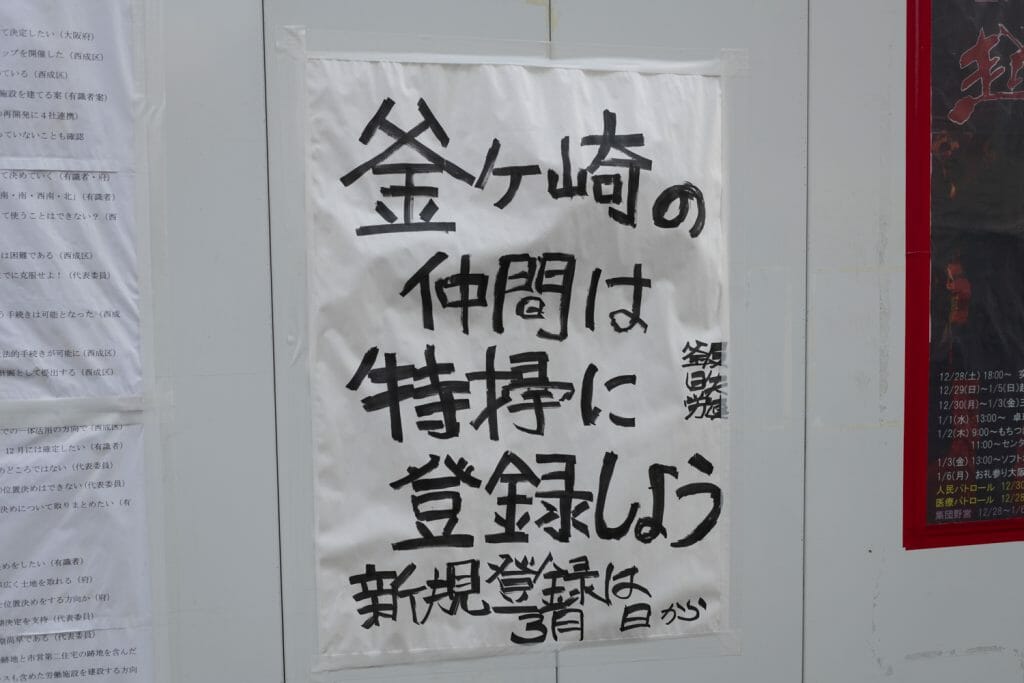 て決定したい（大阪府）
ップを開催した（西成区）
ている（西成区）
施設を建てる案（有識者案）
再開発に４社連携）
っていないことも確認
て決めていく（有識者・府）
南・南・西南・北」（有識者）
て使うことはできない？（西
は困難である（西成区）
でに克服せよ！（代表委員）
う手続きは可能となった（西成
法的手続きが可能に（西成区）
計画として提出する（西成区）
での一体活用の方向で（西成区）
12月には確定したい（有識者）
のどころではない（代表委員）
の位置決めはできない（代表委員）
決めについて取りまとめたい（有
めをしたい（有識者）
広く土地を取れる（府）
位置決めをする方向か（府）
決定を支持（代表委員）
尚早である（代表委員）
跡地と市営第二住宅の跡地を含んだ
スも含めた労働施設を建設する方向
釜ヶ崎の
仲間は
特掃に
登録しよう
新規登録は
3月 日から
釜
日
労
12/28(土) 18:00～
12/29(日)～1/5(日)
12/30(月)～1/3(金)
1/1(水) 13:00～
1/2(木) 9:00～もちつ
11:00～セン
1/3(金) 13:00～ソフト
1/6(月) お礼参り大阪
人民パトロール 12/30
医療パトロール 12/28
集団野営 12/28～1/6